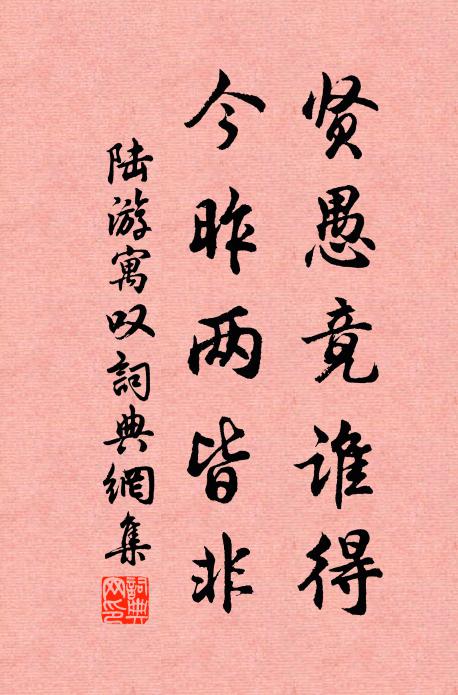 贤愚竟谁得
今昨两皆非
陆游寓叹詞典網集
詞典网印